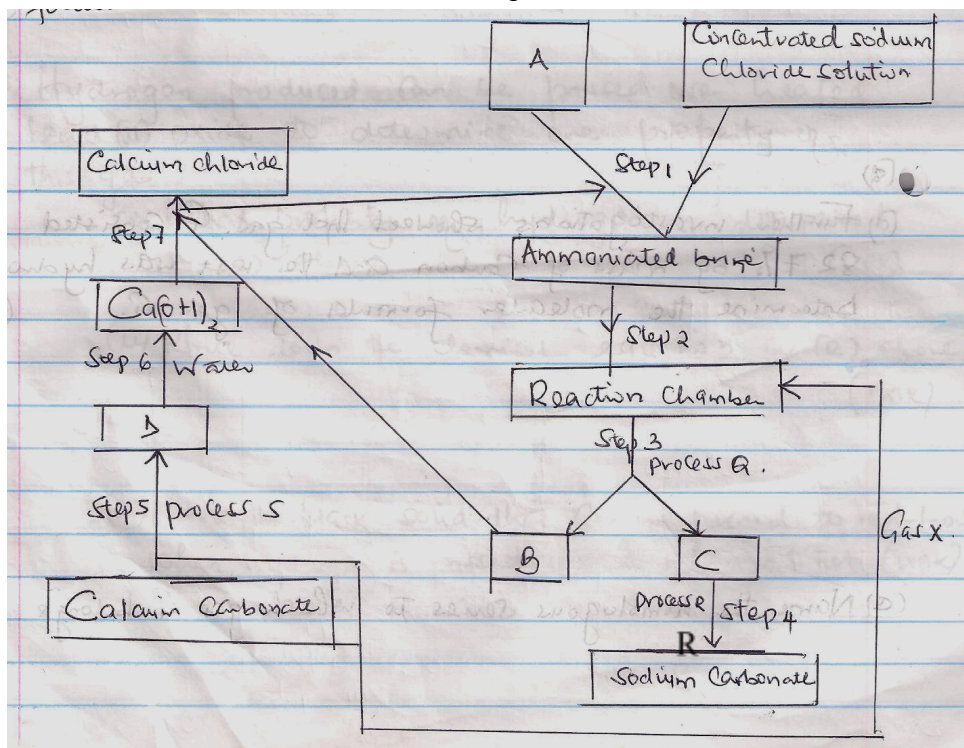 A
Concentrated sodium
Chloride solution
Step 1
Calcium chloride
Step 7
Ammoniated brine
Ca(OH)2
Step 2
Step 6 Water
Reaction Chamber
D
Step 3
Process Q.
Step 5 process S
Gas X.
B
C
Calcium Carbonate
Process
Step 4
R
Sodium Carbonate